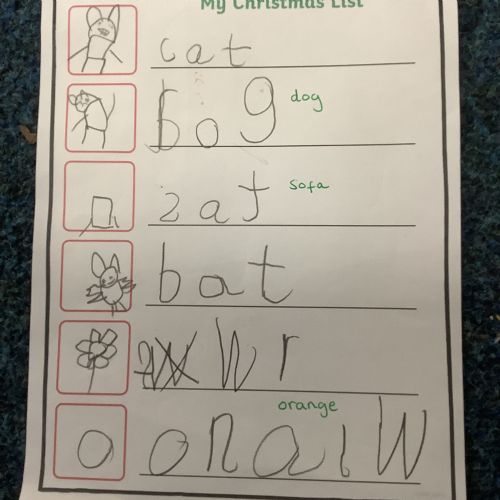 My Christmas List
cat
bog dog
zat sofa
bat
Wr
orange
onaiW